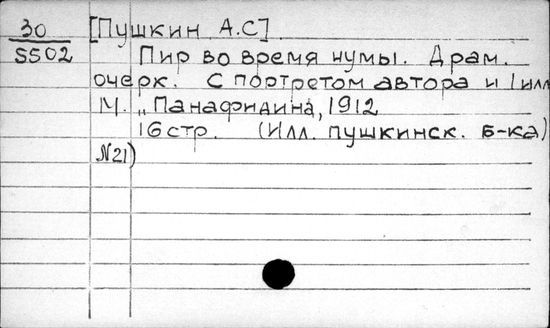 30 [Пушкин А.С].
5502 Пир во время чумы. Драм.
очерк. С портретом автора и 1 илл
М. „Панафидина, 1912
16 стр. (Илл. пушкинск. б-ка)
N21)